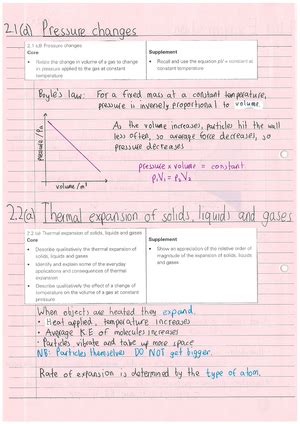 2.1(d) Pressure changes
2.1 (d) Pressure changes
Core
• Relate the change in volume of a gas to change in pressure applied to the gas at constant temperature
Supplement
• Recall and use the equation pV = constant at constant temperature
Boyle's law: For a fixed mass at a constant temperature,
pressure is inversely proportional to volume.
pressure / Pa
volume / m³
As the volume increases, particles hit the wall
less often, so average force decreases, so
pressure decreases
pressure × volume = constant
P₁V₁ = P₂V₂
2.2(a) Thermal expansion of solids, liquids and gases
2.2 (a) Thermal expansion of solids, liquids and gases
Core
• Describe qualitatively the thermal expansion of solids, liquids and gases
• Identify and explain some of the everyday applications and consequences of thermal expansion
• Describe qualitatively the effect of a change of temperature on the volume of a gas at constant pressure
Supplement
• Show an appreciation of the relative order of magnitude of the expansion of solids, liquids and gases
When objects are heated they expand.
• Heat applied, temperature increases
• Average K.E of molecules increases
• Particles vibrate and take up more space
NB: Particles themselves DO NOT get bigger.
Rate of expansion is determined by the type of atom.